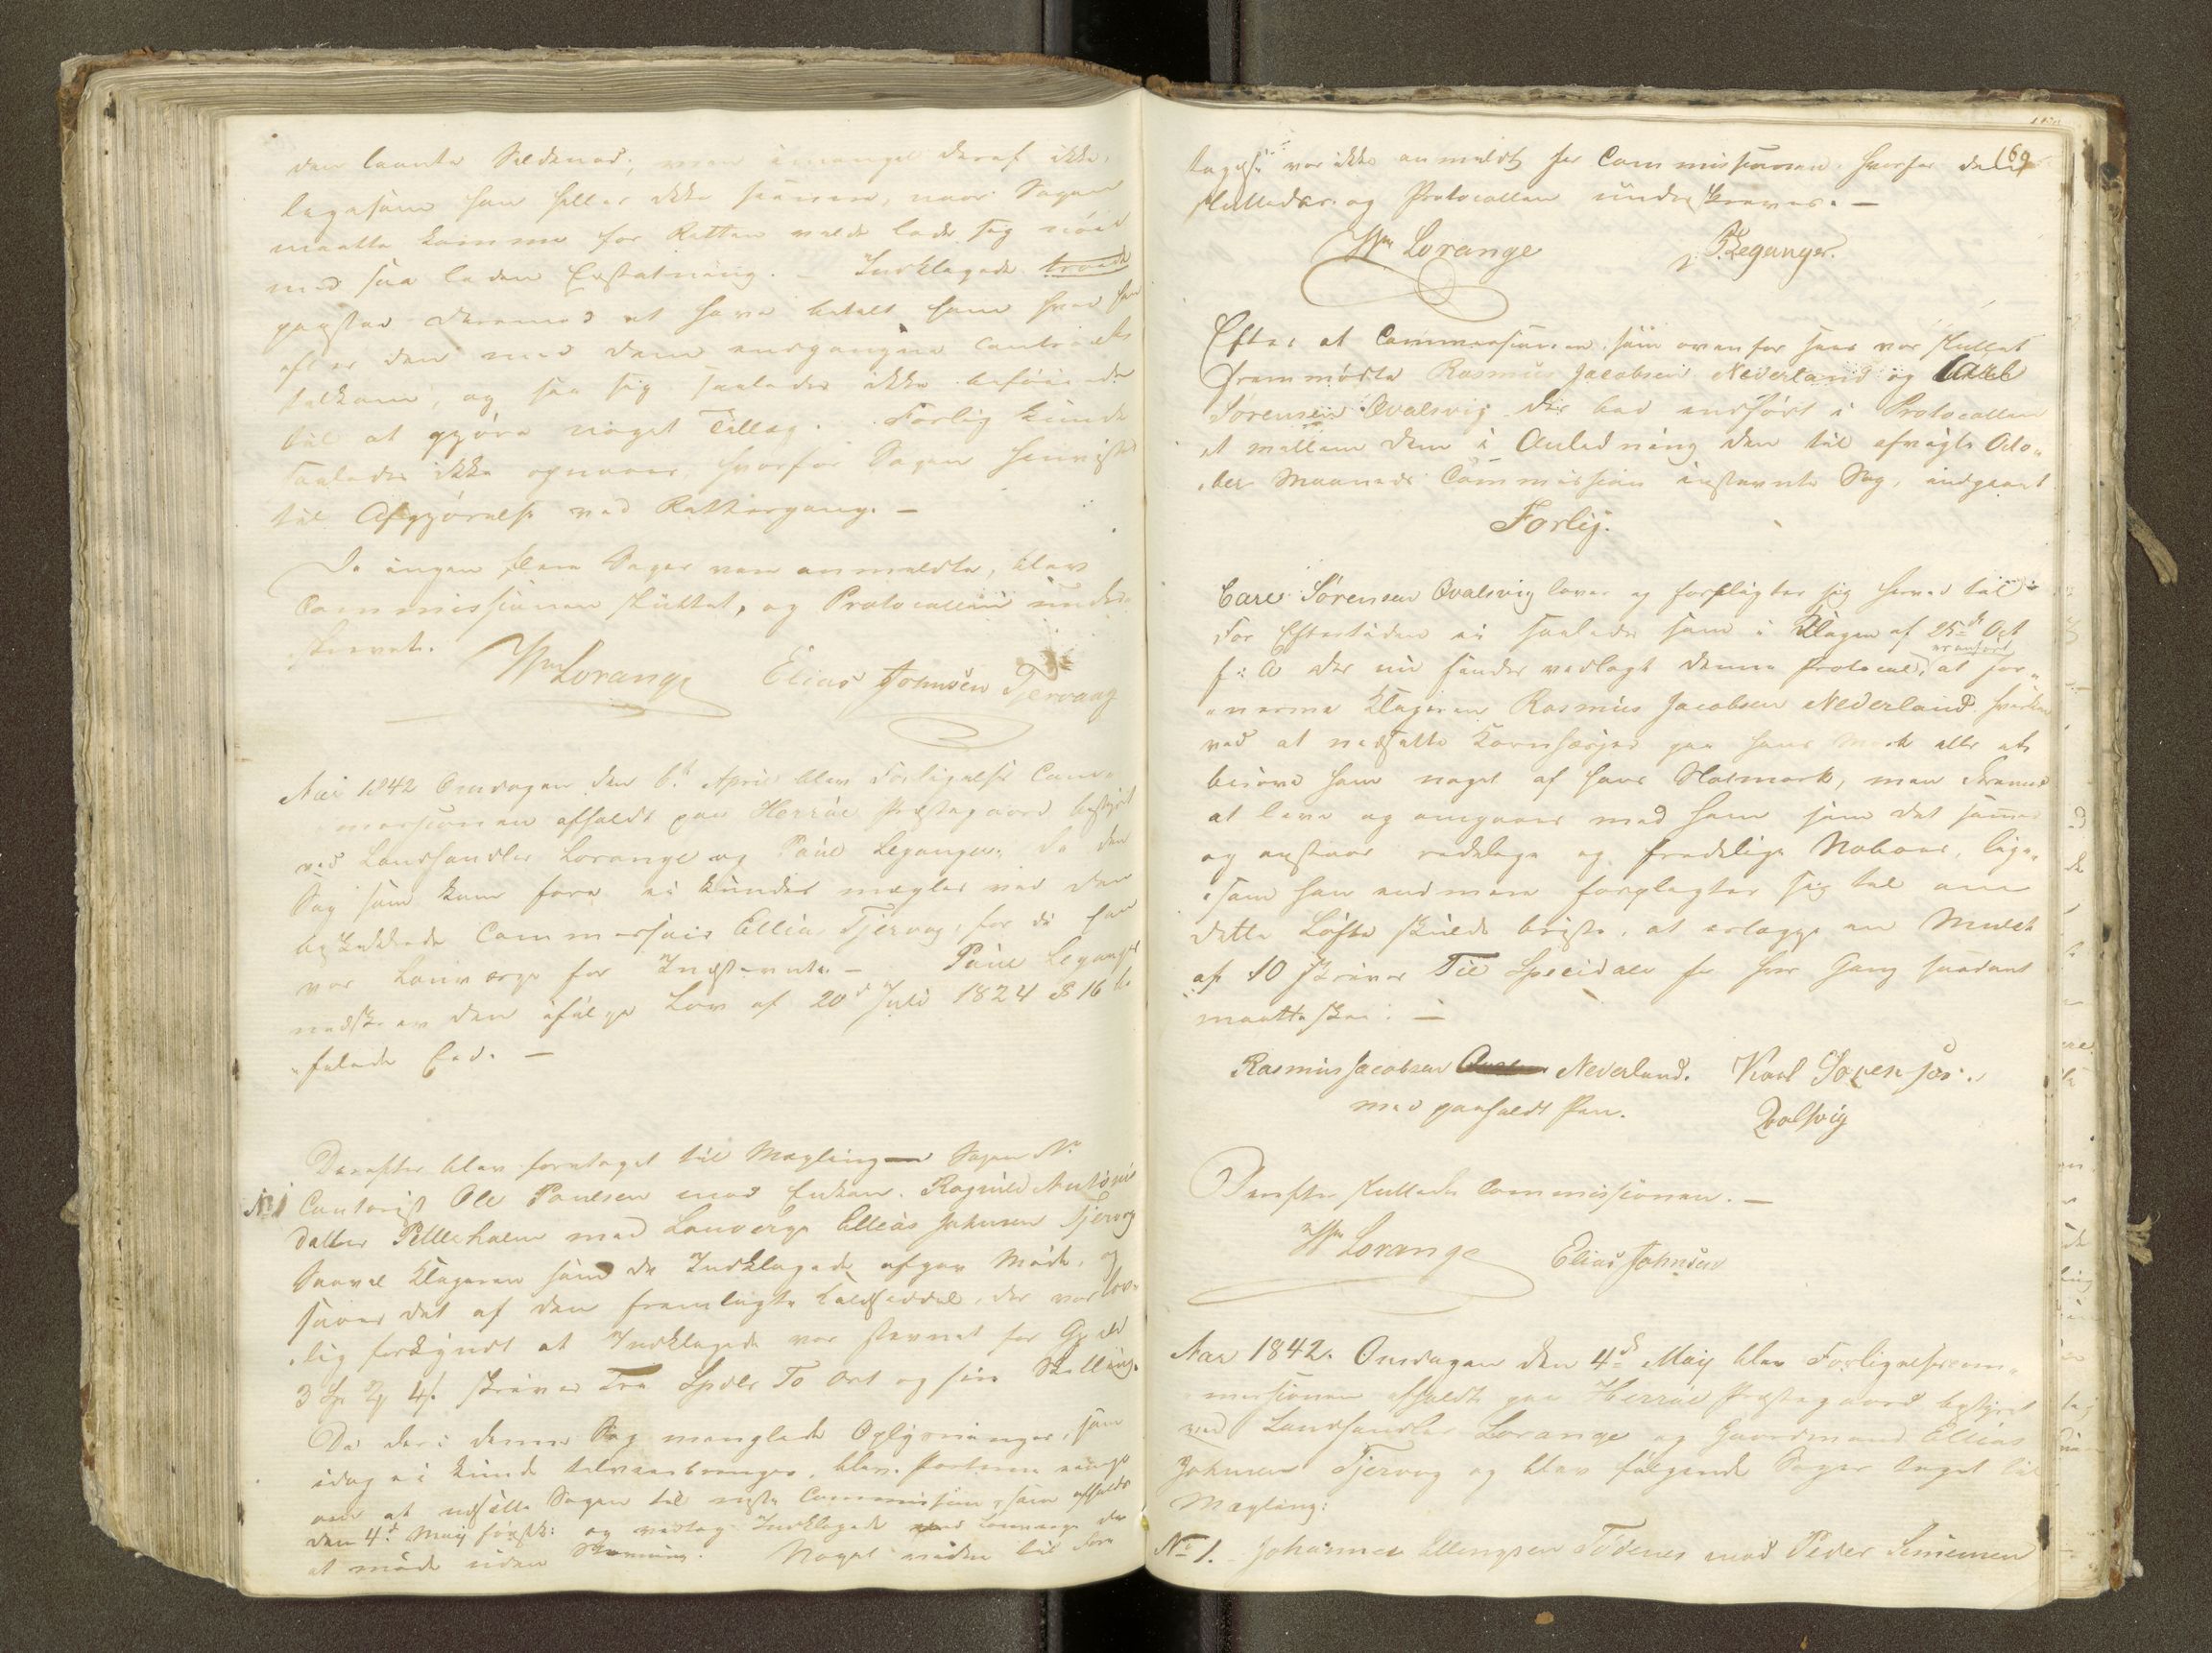 den laante Sildenod; men i mangel deraf ikke,
ligesom han heller ikke skjønner, naar Sagen
maatte komme for Retten vilde lade sig nøie
med saa liden Erstatning. – Indklagede troede
paastod derimod at have betalt ham hvad han
efter den med dem indgangne Contract
tilkom, og saa sig saaledes ikke beføiede
til at gjøre noget Tillæg. Forlig kunde
saaledes ikke opnaaes, hvorfor Sagen henvistes
til Afgjørelse ved Rettergang. –
Da ingen flere Sager vare anmeldte, blev
Commissionen sluttet, og Protocollen under-
skrevet.
Wm Lorange Elias Johnsen Tjervaag
Aar 1842 Onsdagen den 6t April blev Forligelses Com-
missionen afholdt paa Herröe Præstegaard bestyret
ved Landhandler Lorange og Paul Leganger, da den
Sag som kom fore ei kunde mægles ved den
beskikkede Commissair Ellias Tjervog, fordi han
var Lauværge for Indstevnte. – Paul Leganger
nedskrev den ifølge Lov af 20d Juli 1824 § 16 be-
falede Eed. –
Derefter blev foretaget til Mægling Sagen No
No 1 Cantorist Ole Paulsen mod Enken Ragnild Antoni
datter Pillerholm med Lauværge Ellias Johnsen Tjervog
Saavel Klageren som de Indklagede afgav Møde, og
saaes det af den fremlagte Kaldseddel, der var lov-
lig forkyndt at Indklagede var stevnet for Gjeld
3 Sp 2 4 s. skriver Tre Spdlr To Ort og fire Skilling.
Da der i denne Sag manglede Oplysninger, som
idag ei kunde tilveiebringes, blev Parterne enige
om at udsætte Sagen til næste Commission, som afholdes
den 4d May førstk: og vedtog Indklagede med Lauværge da
at møde uden Stevning. Noget videre til Fore
169
tagelse var ikke anmeldt for Commissionen hvorfor den
sluttedes og Protocollen underskreves. –
Wm Lorange P. Leganger.
Efter at Commissionen, som ovenfor saaes var sluttet
fremmødte Rasmus Jacobsen Nederland og Carl
Sørensen Qvalsvig der bad indført i Protocollen
et mellem dem i Anledning den til afvigte Octo-
ber Maaneds Commission instevnte Sag, indgaaet
Forlig.
Carl Sørensen Qvalsvig lover og forpligter sig herved til
for Eftertiden ei saaledes som i Klagen af 25de Oct
f: A der nu findes vedlagt denne Protocol, er anført at for-
nærme Klageren Rasmus Jacobsen Nederland hverken
ved at nedsætte Kornhæsjer paa hans Mark eller at
berøve ham noget af hans Slotmark, men derimod
at leve og omgaaes med ham som det sømmer
og anstaar redelige og fredelige Naboer, lige-
som han endmere forpligter sig til om
dette Løfte skulde briste, at erlægge en Mulct
af 10 skriver Tie Speciedaler for hver Gang saadant
maatte skee. –
Rasmus Jacobsen Nederland. Karl Sørensøn
med paaholdt Pen. Qvalsvig
Derefter sluttedes Commissionen. –
Wm Lorange Elias Johnsen
Aar 1842. Onsdagen den 4de May blev Forligelsescom-
missionen afholdt paa Herröe Præstegaard bestyret
ved Landhandler Lorange og Gaardmand Ellias
Johnsen Tjervog og blev følgende Sager taget til
Mægling:
No 1. Johannes Ellingsen Tødenes mod Peder Simensen